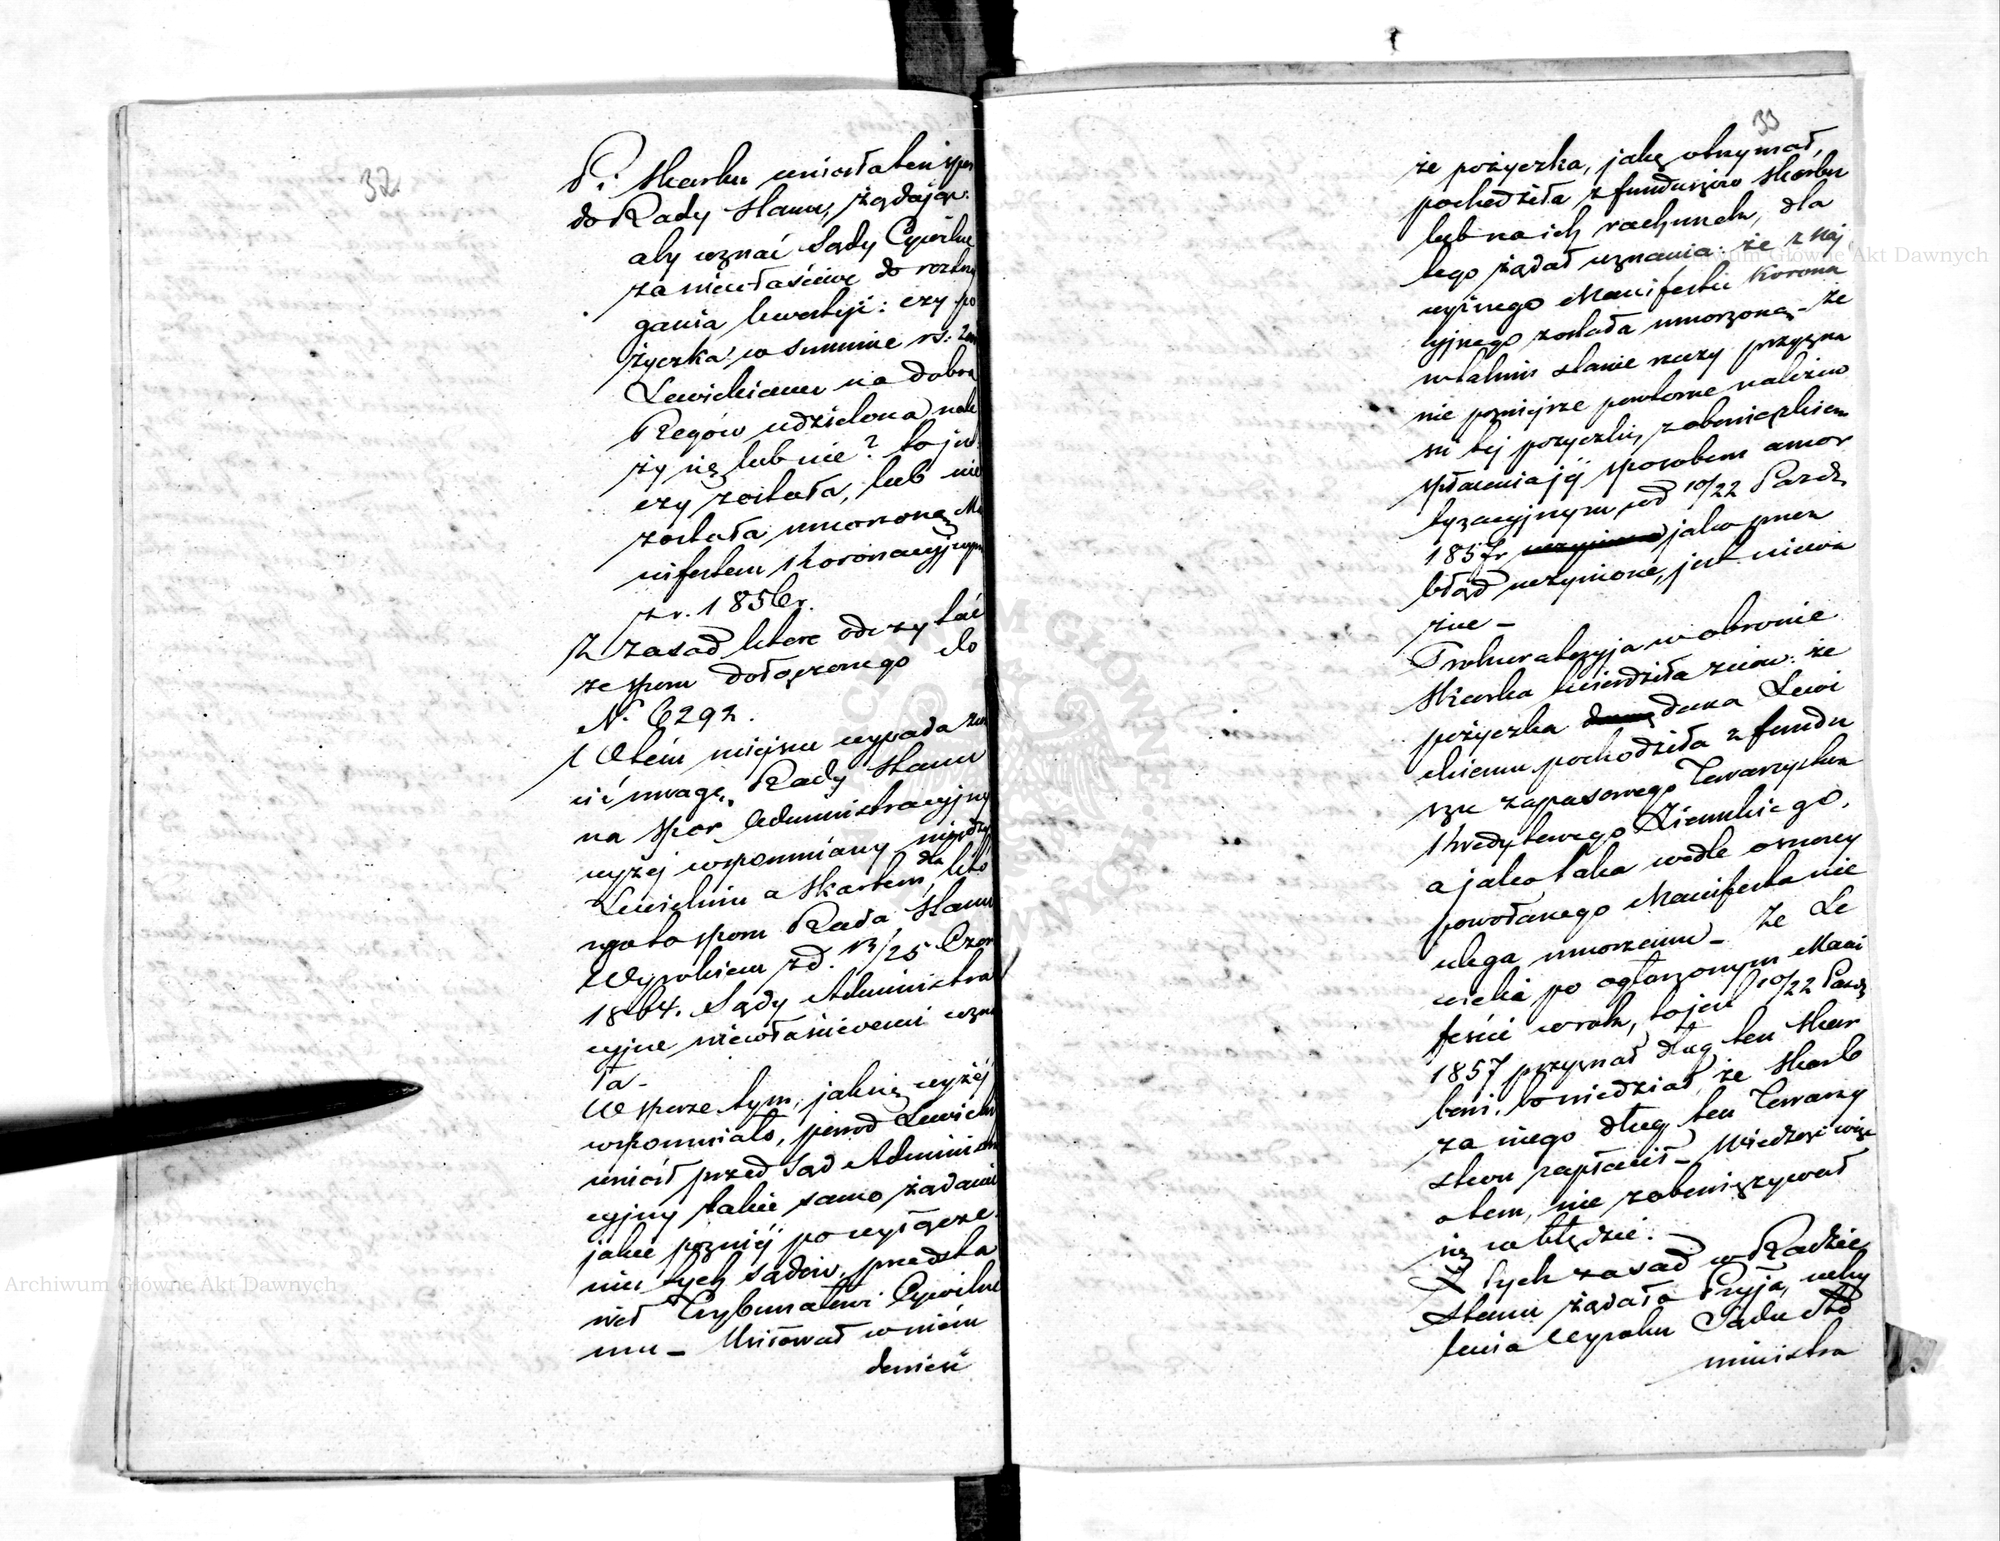 32
P. Skarbu wniosła ten spor
do Rady Stanu, żądając:
aby uznać Sądy Cywilne
za niewłaściwe do rozstrzy
gania kwestyi: czy po
życzka w summie rs:
Lewickiemu na dobra
Rzegów udzielona nale
ży się lub nie? to jest
czy została, lub nie
została umorzoną Ma
nifestem Koronacyjnym
z r. 1856 r.
Z zasad które odczytać
ze sporu dołączonego do
N. 6292.
W tém miejscu wypada zwró
cić uwagę Rady Stanu
na spór Administracyjny
wyżej wspomniany między
Lewickim a Skarbem, dla któ
rego to sporu Rada Stanu
Wyrokiem z d. 13/25 Czer
1864. Sądy Administra
cyjne niewłaściwemi uzna
ła.
W sporze tym, jak się wyżéj
wspomniało, powod Lewicki
wniósł przed Sąd Administra
cyjny takie samo żądanie
jakie pozniéj po wyłącze
niu tych sądów, przedsta
wił Trybunałowi Cywilne
mu – Usiłował w niém
dowieść
33
że pożyczka, jaką otrzymał,
pochodziła z funduszów Skarbu
lub na ich rachunek, dla
tego żądał uznania: że z Naj
wyższego Manifestu Korona
cyjnego została umorzoną – że
w takim stanie rzeczy przyzna
nie poźniejsze powtorne należno
ści téj pożyczki, z obowiązkiem
spłacenia jéj sposobem amor
tyzacyjnym od 10/22 Pazdz.
1857 r. jako przez
błąd uczynione, jest niewa
żne –
Prokuratoryja w obronie
Skarbu twierdziła znow: że
pożyczka dana Lewi
ckiemu pochodziła z fundu
szu zapasowego Towarzystwa
Kredytowego Ziemskiego,
a jako taka wedle osnowy
powołanego Manifestu nie
ulega umorzeniu – że Le
wicki po ogłoszonym Mani
feście w rok, to jest 10/22 Pazdz
1857 przyznał dług ten Skar
bowi, bo wiedział, że Skarb
za niego dług ten Towarzy
stwu zapłacił – Wiedząc więc
o tem, nie zobowiązywał
się w błędzie. –
Z tych zasad w Radzie
Stanu żądała Pryja, uchy
lenia Wyroku Sądu Ad
ministra
Archiwum Główne Akt Dawnych
Archiwum Główne Akt Dawnych